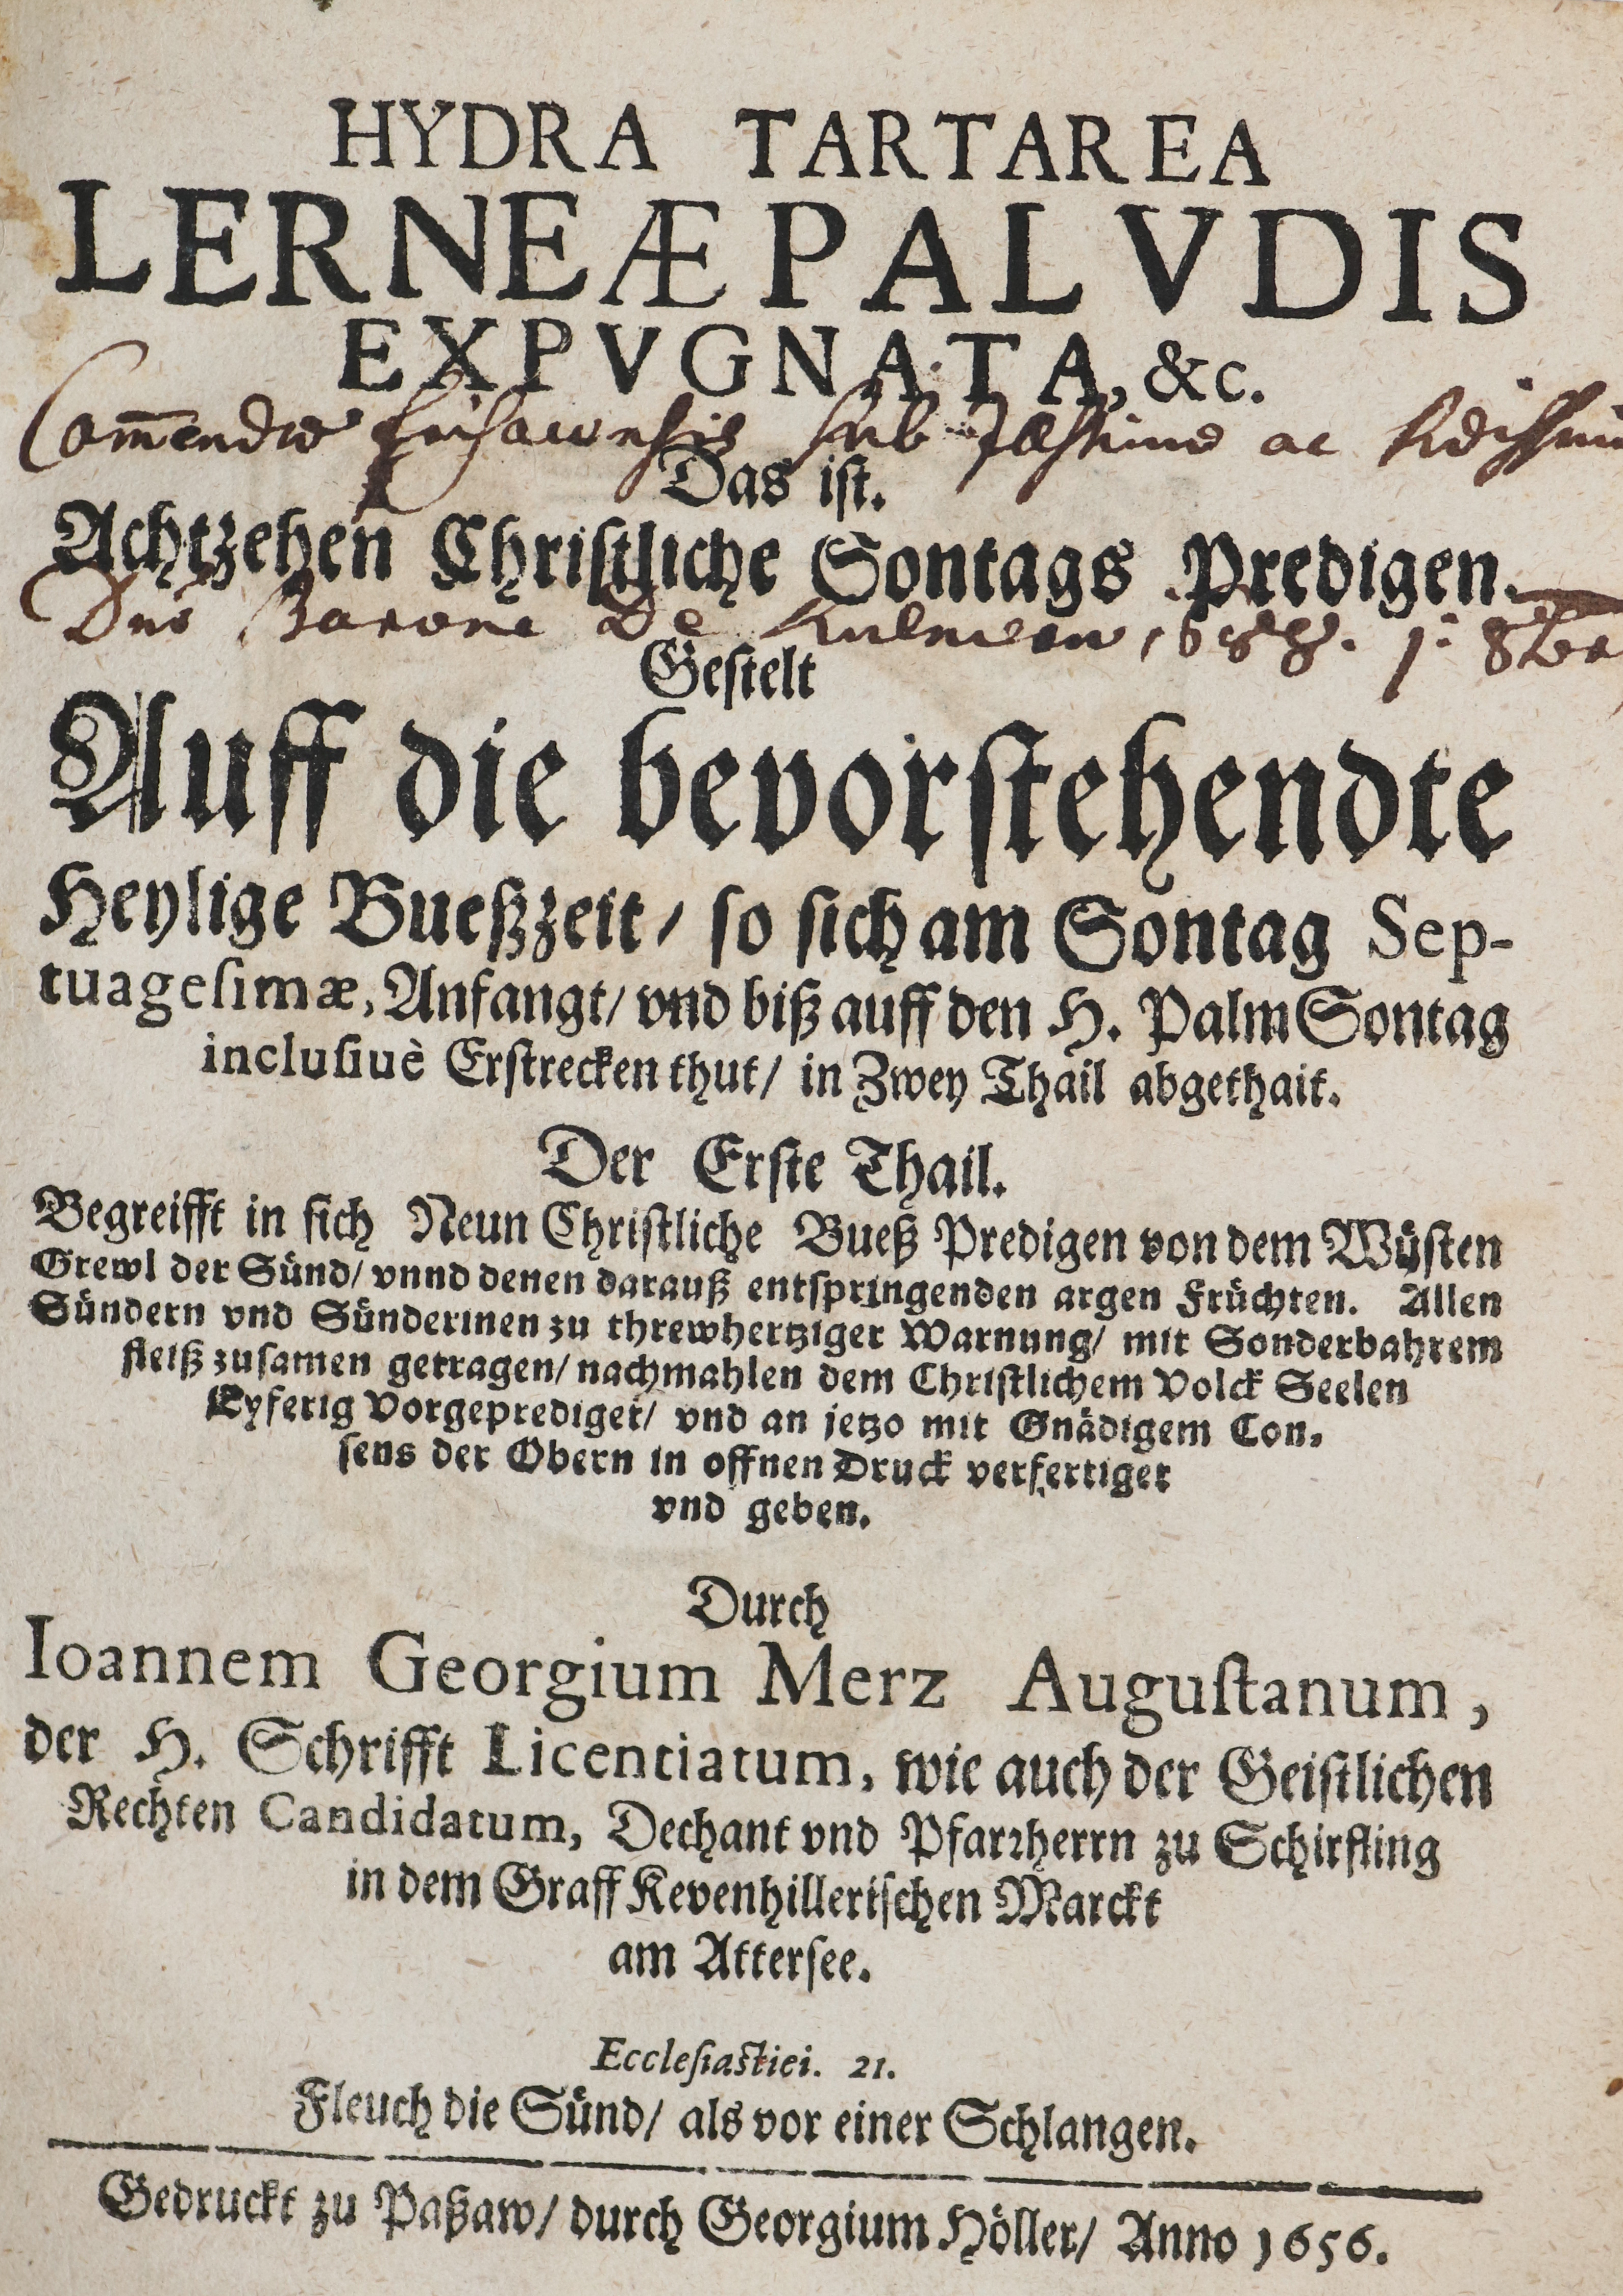 HYDRA TARTAREA
LERNEÆ PALVDIS
EXPVGNATA, &c.
Com̄endæ sub ac
Das ist.
Achtzehen Christliche Sontags Predigen.
Dno Barone De 1688. 1. 8br
Gestelt
Auff die bevorstehendte
Heylige Bueßzeit / so sich am Sontag Sep-
tuagesimæ, Anfangt / vnd biß auff den H. Palm Sontag
inclusiuè Erstrecken thut / in Zwey Thail abgethait.
Der Erste Thail.
Begreifft in sich Neun Christliche Bueß Predigen von dem Wüsten
Grewl der Sünd / vnnd denen darauß entspringenden argen Früchten. Allen
Sündern vnd Sünderinen zu threwhertziger Warnung / mit Sonderbahrem
fleiß zusamen getragen / nachmahlen dem Christlichem Volck Seelen
Eyferig Vorgeprediget / vnd an jetzo mit Gnädigem Con-
sens der Obern in offnen Druck verfertiget
vnd geben.
Durch
Ioannem Georgium Merz Augustanum,
der H. Schrifft Licentiatum, wie auch der Geistlichen
Rechten Candidatum, Dechant vnd Pfarrherrn zu Schirfling
in dem Graff Kevenhillerischen Marckt
am Attersee.
Ecclesiastici. 21.
Fleuch die Sünd / als vor einer Schlangen.
Gedruckt zu Paßaw / durch Georgium Höller / Anno 1656.